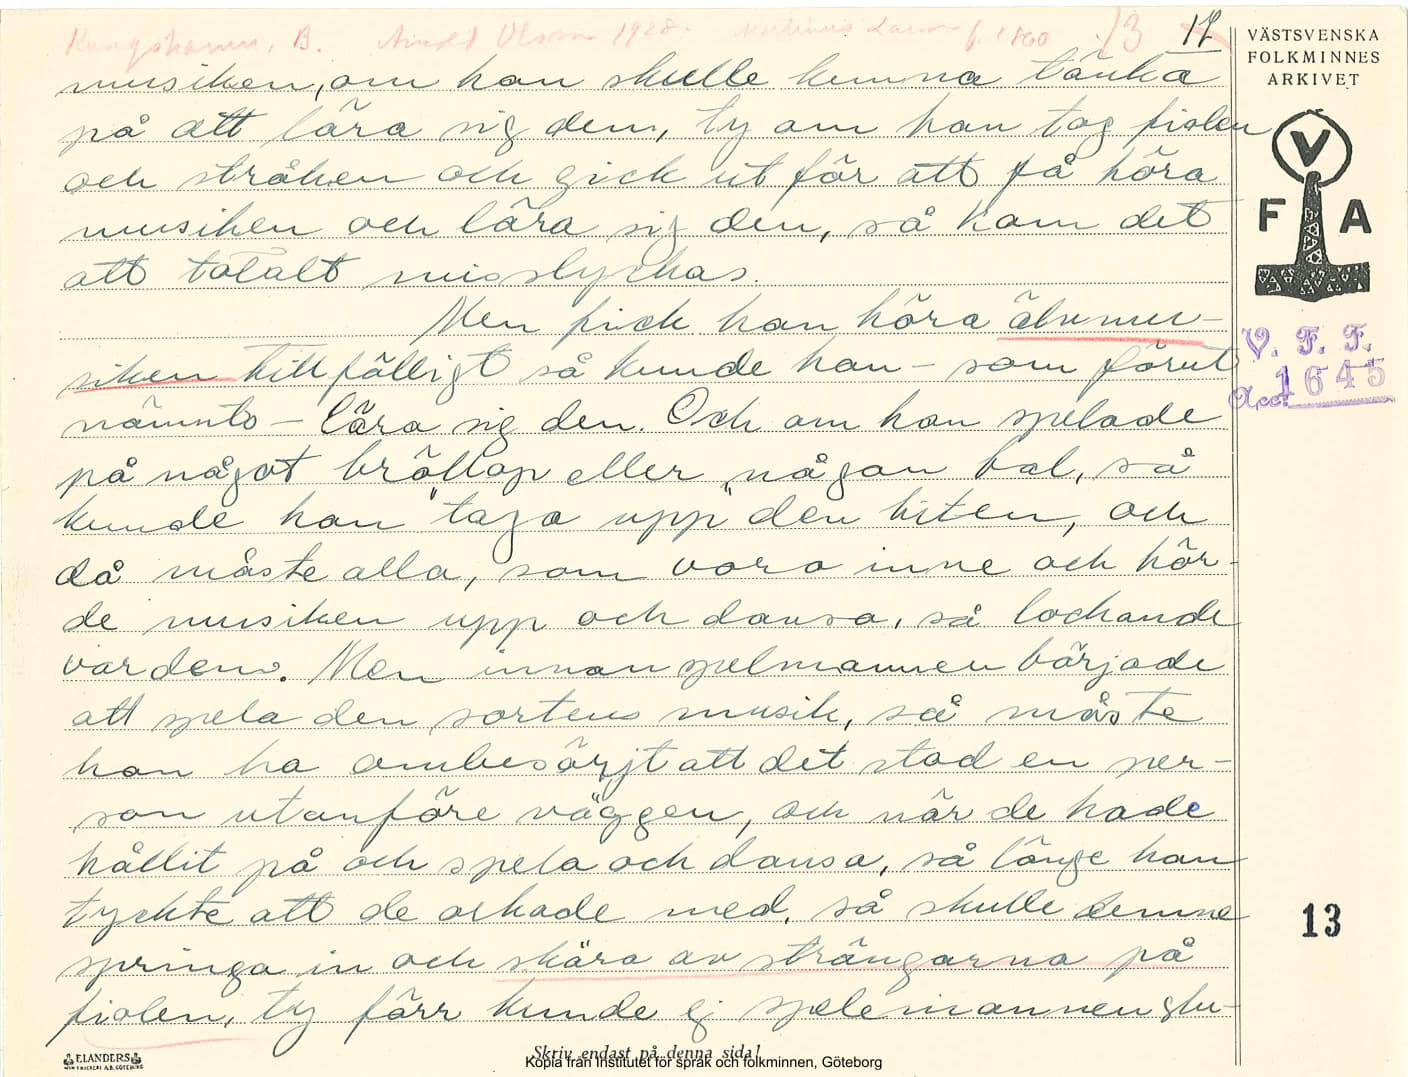 Kungshamn, B. Arvid Olsson 1928. Martinus Larsson f. 1860 13 17
VÄSTSVENSKA
FOLKMINNES
ARKIVET
V
F A
V. F. F.
Acc. 1645
musiken, om han skulle kunna tänka
på att lära sig dem, ty om han tog fiolen
och stråken och gick ut för att få höra
musiken och lära sig den, så kom det
att totalt misslyckas.
Men fick han höra älvmu-
siken tillfälligt så kunde han – som förut
nämnts – lära sig den. Och om han spelade
på något bröllop eller någon bal, så
kunde han "taga upp" den biten, och
då måste alla, som voro inne och hör-
de musiken upp och dansa, så lockande
var den. Men innan spelmannen började
att spela den sortens musik, så måste
han ha ombesörjt att det stod en per-
son utanföre väggen, och när de hade
hållit på och spela och dansa, så länge han
tyckte att de orkade med, så skulle denne
springa in och skära av strängarna på
fiolen, ty förr kunde ej spelemannen slu-
13
ELANDERS
BOKTRYCKERI A.B. GÖTEBORG
Skriv endast på denna sida!
Kopia från Institutet för språk och folkminnen, Göteborg